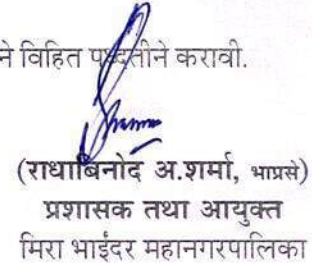 ने विहित पध्दतीने करावी.
(राधाबिनोद अ.शर्मा, भाप्रसे)
प्रशासक तथा आयुक्त
मिरा भाईंदर महानगरपालिका